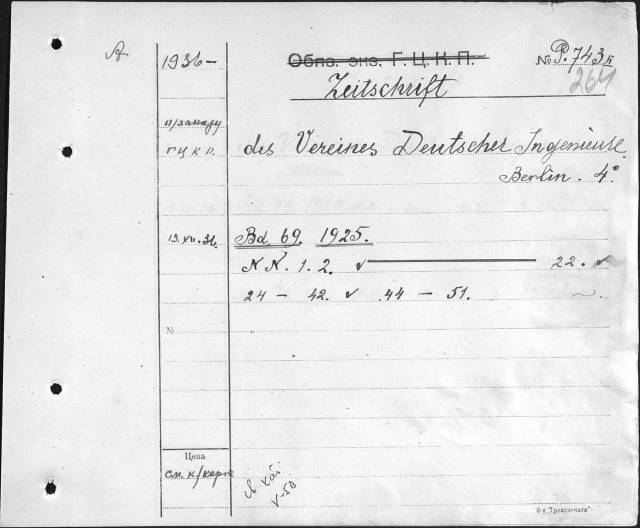 А
1936-
Обяз. экз. Г.Ц.К.П.
№ P.743 II
264
Zeitschrift
п/заказу
гцкп.
des Vereines Deutscher Ingenieure.
Berlin. 4°.
13.VII.36.
Bd 69. 1925.
N N. 1. 2. ✓ — 22. ✓
24 - 42. ✓ 44 - 51.
№
Цена
см. к/карт
V-50